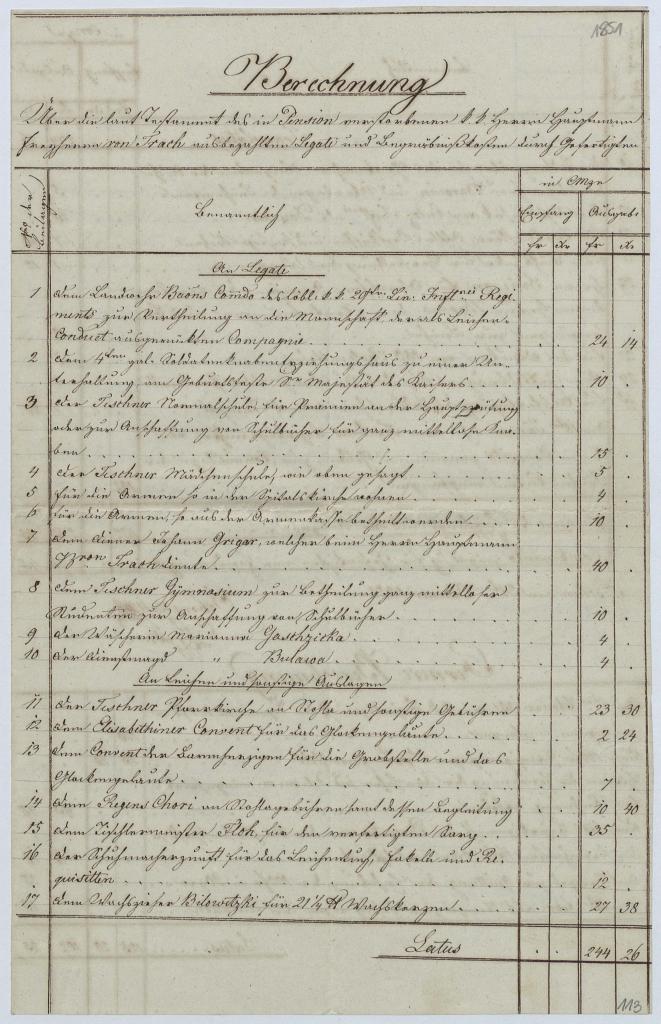 1851
Berechnung
Über die laut Testament des in Pension verstorbenen k. k. Herrn Hauptmann
Freyherrn von Trach ausbezahlten Legate und Begräbnißkosten durch Gefertigten
No der Beilagen
Benanntlich
in CMze
Empfang Ausgabe
fr Xr fr Xr
An Legate
1 dem Landwehr Baōns Comdo des löbl. k. k. Lin. Inftrie Regi-
ments zur Vertheilung an die Mannschaft der als Leichen-
Conduct ausgerückten Compagnie . . . 24 14
2 dem 4ten gal. Soldatenknabenerziehungshaus zu einer Un-
terhaltung am Geburtsfeste Sr Majestät des Kaisers . . . 10 .
3 der Teschner Normalschule, für Prämien an der Hauptprüfung
oder zur Anschaffung von Schulbücher für ganz mittellose Kna-
ben . . . 15 .
4 der Teschner Mädchenschule, wie oben gesagt . . . 5 .
5 für die Armen so in der Spitalskirche wohnen . . . 4 .
6 für die Armen, so aus der Armenkasse betheilt werden . . . 10 .
7 dem Diener Johann Grigar, welcher beim Herrn Hauptmann
Bron Trach diente . . . 40 .
8 dem Teschner Gymnasium zur Betheilung ganz mittelloser
Studenten zur Anschaffung von Schulbücher . . . 10 .
9 der Wäscherin Marianna Goschzicka . . . 4 .
10 der Dienstmagd " Bulawa . . . 4 .
An Leichen und sonstige Auslagen
11 der Teschner Pfarrkirche an Stohla und sonstige Gebühren 23 30
12 dem Elisabethiner Convent für das Glockengeläute . . . 2 24
13 dem Convent der Barmherzigen für die Grabstelle und das
Glockengeläute . . . 7 .
14 dem Regens Chori an Stohlagebühren samt dessen Begleitung 10 40
15 dem Tischlermeister Floh, für den verfertigten Sarg . . . 35 .
16 der Schuhmacherzunft für das Leichentuch, Fakeln und Re-
quisitten . . . 12 .
17 dem Wachszieher Bilowitzki für 21 1/4 ℔ Wachskerzen . . . 27 38
Latus . . 244 26
113